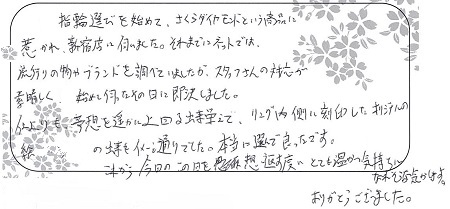 指輪選びを始めて、さくらダイヤモンドという商品に
惹かれ、新宿店に伺いました。それまでにネットでは、
流行りの物やブランドを調べていましたが、スタッフさんの対応が
素晴しく 始めに伺ったその日に即決しました。
仕上りも、予想を遥かに上回る出来栄えで、リング内側に刻印したオリジナルの
絵 の出来もイメージ通りでした。本当に選んで良かったです。
これから今日のこの日を 想い返す度に とても温かい気持ちに
なれる気がします。
ありがとうございました。